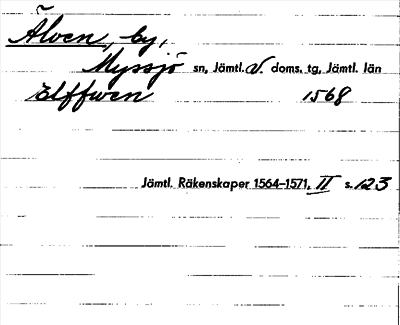 Älven, by,
Myssjö sn, Jämtl. v. doms. tg, Jämtl. län
Elffwen 1568
Jämtl. Räkenskaper 1564–1571, II s. 123